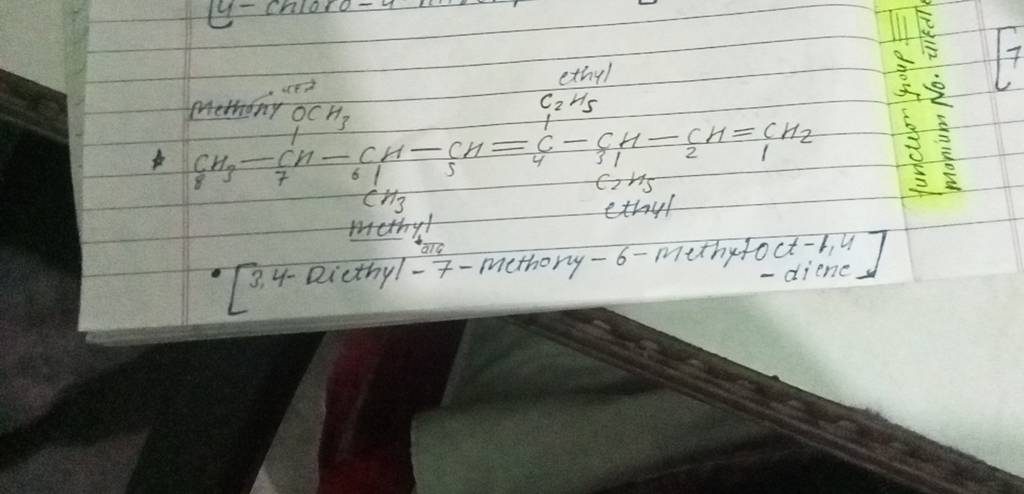 [4-chloro-4-
ethyl
Methony OCH3 C2H5
CH3-CH-CH-CH=C-CH-CH=CH2
8 7 6 5 4 3 2 1
CH3 C2H5
methyl ethyl
• [3,4-Diethyl-7-methony-6-methyl oct-1,4
-diene]
function group
No.
[7